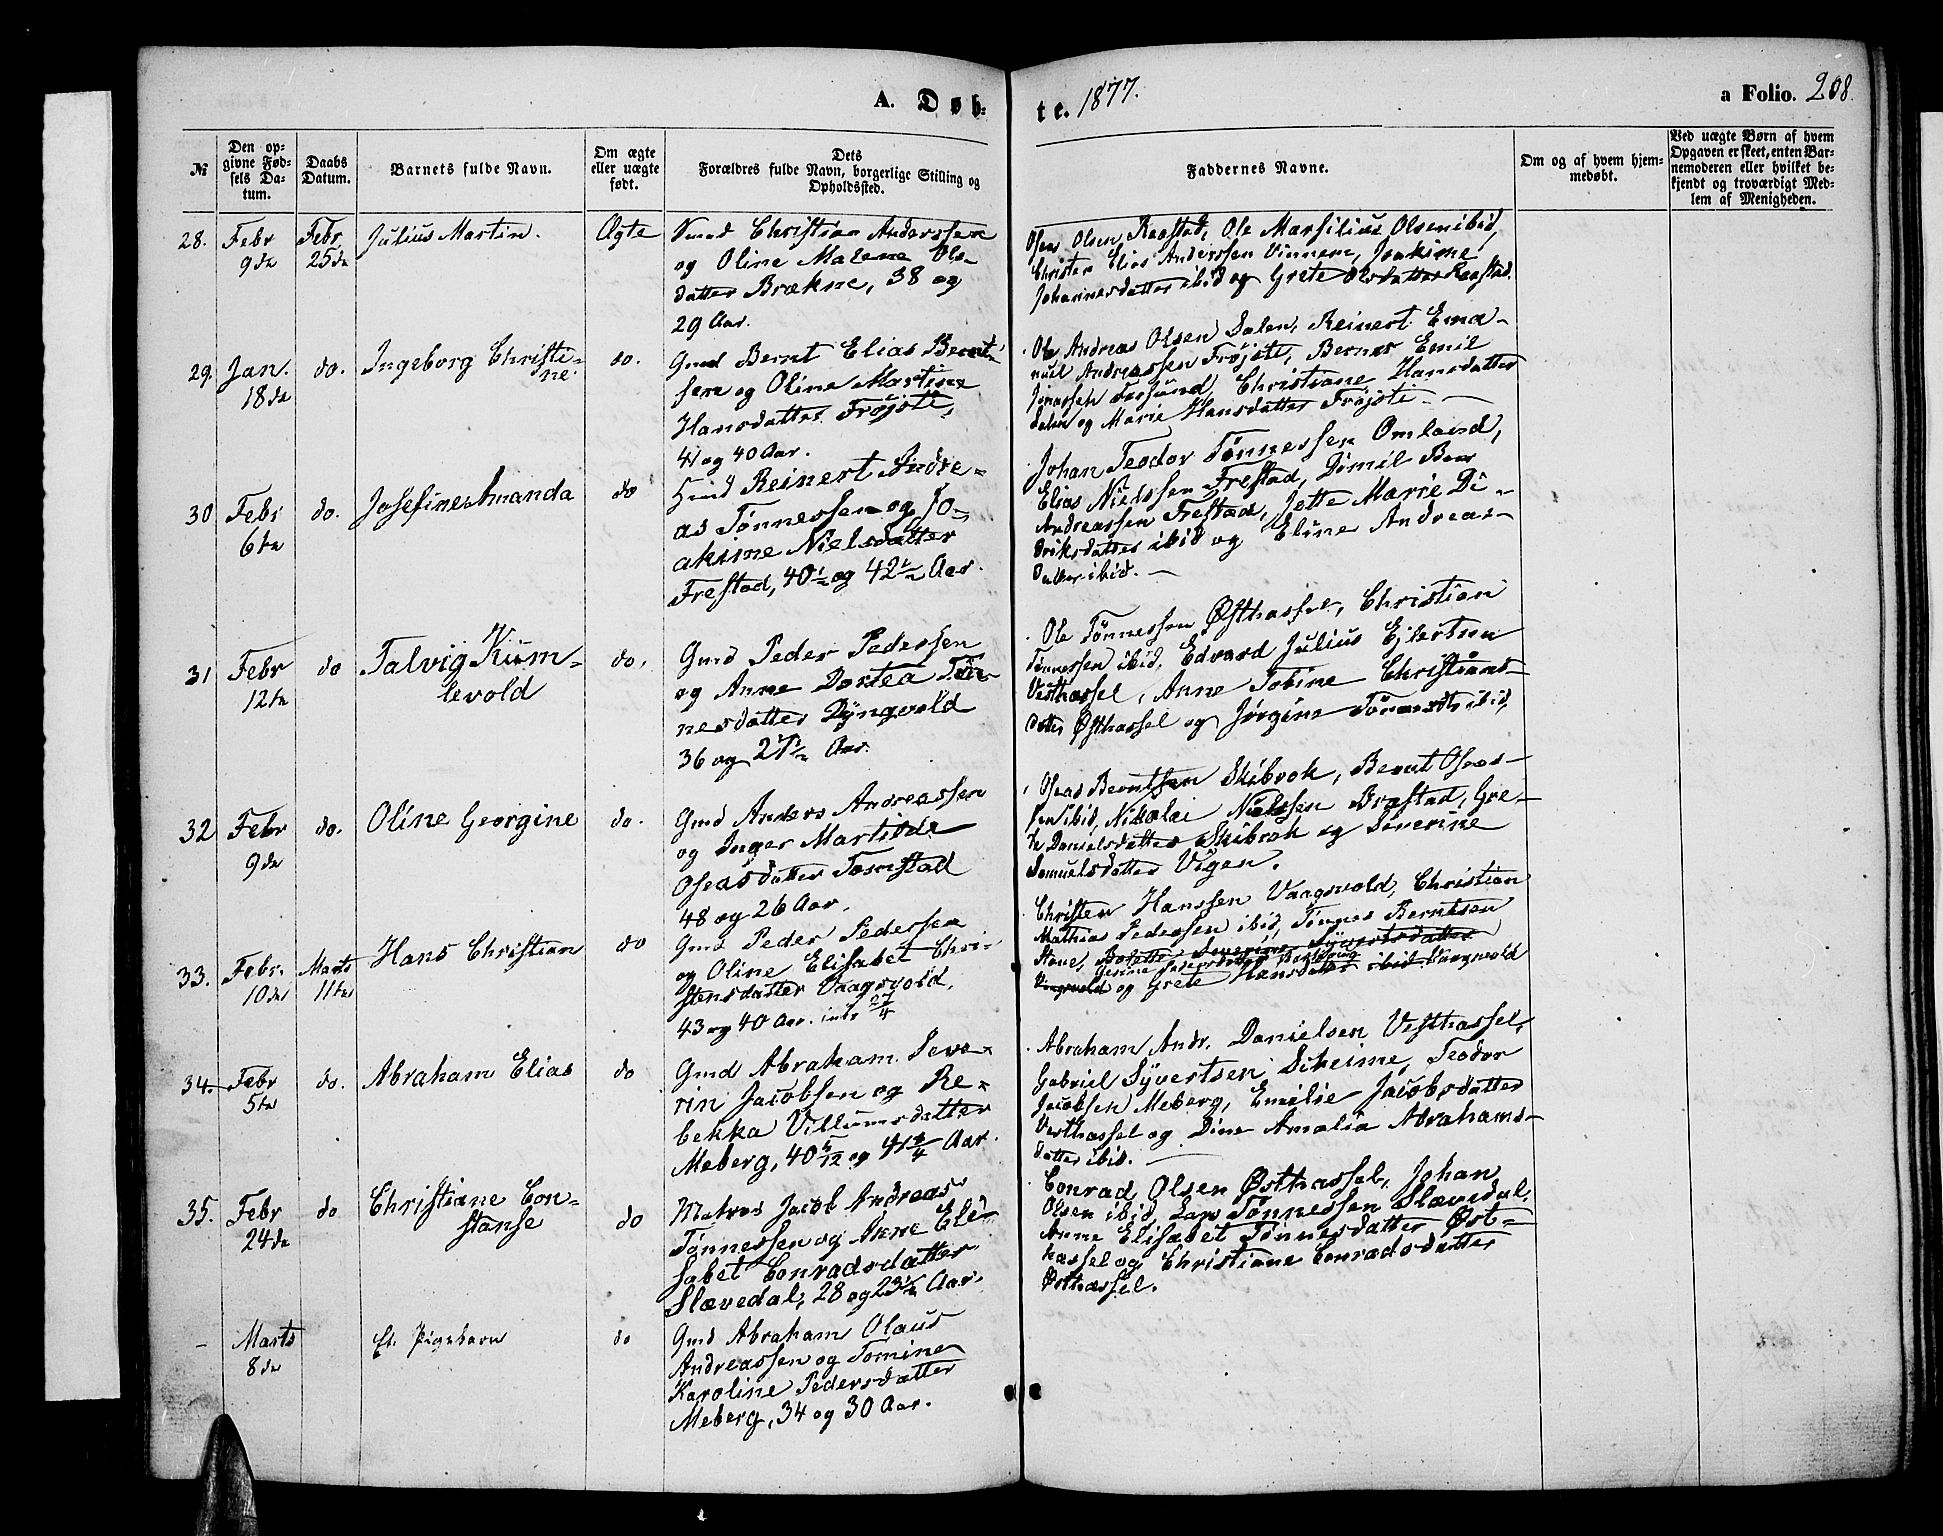 A. Døb-
te. 1877.
a Folio. 208.
№
Den op-
givne Fød-
sels Da-
tum.
Daabs
Datum.
Barnets fulde Navn.
Om ægte
eller uægte
født.
Dets
Forældres fulde Navn, borgerlige Stilling og
Opholdssted.
Faddernes Navne.
Om og af hvem hjem-
medøbt.
Ved uægte Børn af hvem
Opgaven er skeet, enten Bar-
nemoderen eller hvilket be-
kjendt og troværdigt Med-
lem af Menigheden.
28.
Febr
9de
Febr
25de
Julius Martin.
Ægte
Christian Anderssen
og Oline Malene Ols-
datter Brækne, 38 og
29 Aar.
Oseas Olsen Raastad, Ole Marsilius Olsen ibid,
Christen Elias Anderssen Vinnem, Joakime
Johannesdatter ibid og Grete Olsdatter Raastad.
29.
Jan.
18de
do.
Ingeborg Christi-
ne.
do.
Gmd Bernt Elias Bernt-
sen og Oline Martine
Hansdatter Frøjsti,
41 og 40 Aar.
Ole Andreas Olsen Dalen, Reinert Ema-
nuel Andreassen Frøjsti, Berner Emil
Jonassen Fosund, Christiane Hansdatter
Dalen og Marie Hansdatter Frøjsti
30
Febr
6te
do.
Josefine Amanda
do
Hmd Reinert Andre-
as Tønnessen og Jo-
akime Nielsdatter
Frestad, 40½ og 42½ Aar.
Johan Teodor Tønnessen Omland,
Elias Nielssen Frestad,
Andreassen Frestad, Jette Marie Di-
driksdatter ibid og Eline Andreas-
datter ibid.
31
Febr
12te
do
Talvig Kum-
levold
do,
Gmd Peder Pedersen
og Anne Dortea Tøn-
nesdatter Dyngvold
36 og 27½ Aar.
Ole Tønnessen Østhassel, Christian
Tønnessen ibid, Edvard Julius Ejlertsen
Vesthassel, Anne Tobine Christians-
datter Østhassel og Jørgine Tønnesdtr ibid,
32
Febr
9de
do.
Oline Georgine
do.
Gmd Anders Andreassen
og Inger Martilde
Oseasdatter Tomstad
48 og 26 Aar.
Oseas Berntsen Skibrok, Bernt Oseas-
sen ibid, Nikolai Nielssen Brastad, Gre-
te Danielsdatter Skibrok og Severine
Samuelsdatter Vigen.
33.
Febr.
10de
Marts
11te
Hans Christian
do
Gmd Peder Pedersen
og Oline Elisabet Chri-
stensdatter Vaagsvold,
43 og 40 Aar. intr 27/4
Christen Hanssen Vaagsvold, Christian
Mathias Pedersen ibid, Tønnes Berntsen
Stave, Severine Syvertsdatter
og Grete Hansdatter ibid. Vaagsvold
34.
Febr
5te
do.
Abraham Elias
do
Gmd Abraham Seve-
rin Jacobsen og Re-
bekka Villumsdatter
Meberg, 40 5/12 og 41¾ Aar.
Abraham Andr. Danielsen Vesthassel,
Gabriel Syvertsen Skeime, Teodor
Jacobsen Meberg, Emilie Jacobsdatter
Vesthassel og Dine Amalia Abrahams-
datter ibid.
35.
Febr
24de
do
Christiane Con-
stanse
do
Matros Jacob Andreas
Tønnessen og Anne Eli-
sabet Conradsdatter
Slævedal, 28 og 23½ Aar.
Conrad Olsen Østhassel, Johan
Olsen ibid, Lars Tønnessen Slævedal,
Anne Elisabet Tønnesdatter Øst-
hassel og Christiane Conradsdatter
Østhassel.
Marts
8de
Et Pigebarn
do
Gmd Abraham Olaus
Andreassen og Tomine
Karoline Pedersdatter
Meberg, 34 og 30 Aar.